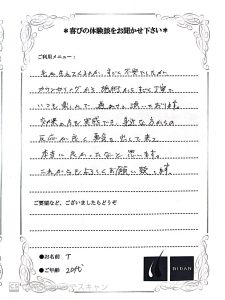 ＊喜びの体験談をお聞かせ下さい＊
ご利用メニュー：
毛が生えてくるのか、すごく不安でしたが
カウンセリングから施術がとても丁寧で
いつも楽しんで通わせて頂いております。
効果の方も実感でき、身近な方からの
反応が良く勇気を出して来て
本当に良かったなと思います。
これからもよろしくお願い致します。
ご要望など、ございましたらどうぞ
●お名前 T
●ご年齢 20代
BIDAN
スキャン